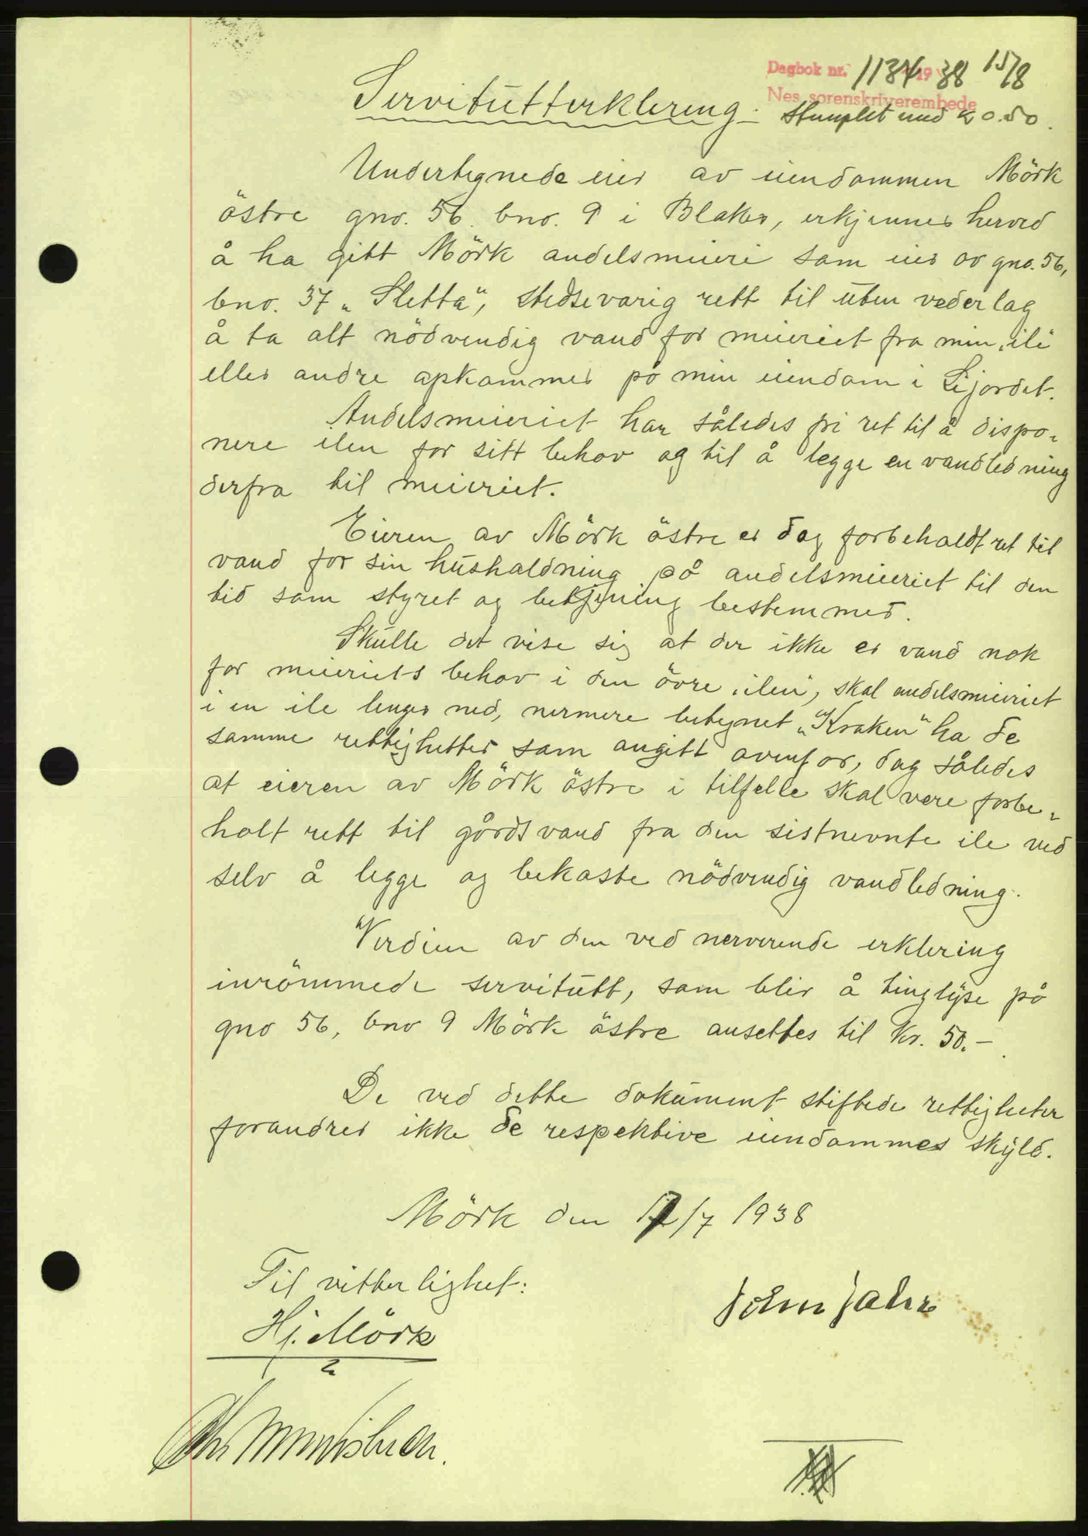 Dagbok nr. 1134 19 38 15/8
Nes sorenskriverembede
Servitutterklering.
Stemplet med k 0.50.
Undertegnede eier av eiendommen Mörk
östre gno. 56 bno. 9 i Blaker, erkjenner herved
å ha gitt Mörk andelsmeieri som eier av gno. 56,
bno. 37 „Sletta", stedsevarig rett til uten vederlag
å ta alt nödvendig vand for meieriet fra min „ile"
eller andre opkommer på min eiendom i Lijordet.
Andelsmeieriet har således fri ret til å dispo-
nere ilen for sitt behov og til å legge en vandledning
derfra til meieriet.
Eieren av Mörk östre er dog forbeholdt ret til
vand for sin husholdning på andelsmeieriet til den
tid som styret og betjening bestemmer.
Skulle det vise sig at der ikke er vand nok
for meieriets behov i den övre „ilen", skal andelsmeieriet
i en ile lenger ned, nermere betegnet „Kraken" ha de
samme rettighetter som angitt ovenfor, dog således
at eieren av Mörk östre i tilfelle skal vere forbe-
holt rett til gårdsvand fra den sistnevnte ile ved
selv å legge og bekoste nödvendig vandledning.
Verdien av den ved nerverende erklering
inrömmede servitutt, som blir å tinglyse på
gno 56, bno 9 Mörk östre ansettes til kr. 50.-
De ved dette dokument stiftede rettigheter
forandrer ikke de respektive eiendommes skyld.
Mörk den 17/7 1938
Til vitterlighet:
John Jahr
Hj. Mörk